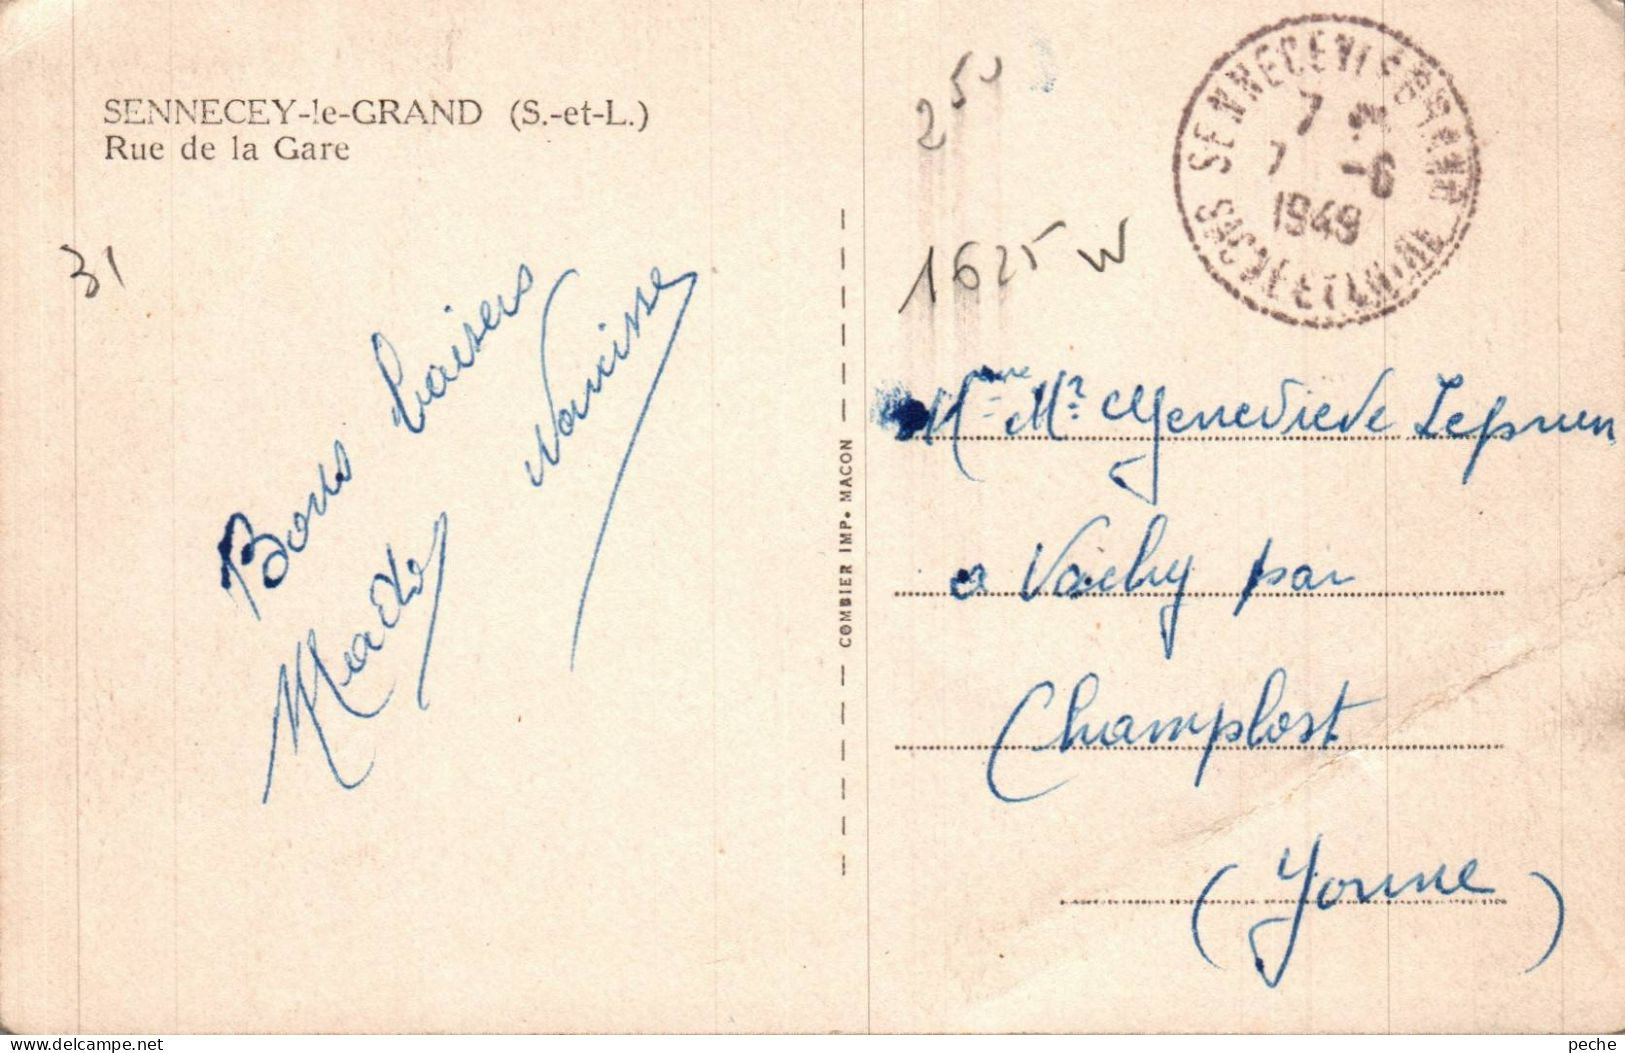 SENNECEY-le-GRAND (S.-et-L.)
Rue de la Gare
31
Bons baisers
Mado
Narcisse
COMBIER IMP. MACON
2 50
1625 W
SENNECEY LE GRAND
7
7 -6
1949
SAONE ET LOIRE
Mme Mr Genevieve
a Vachy par
Champlost
(Yonne)
peche